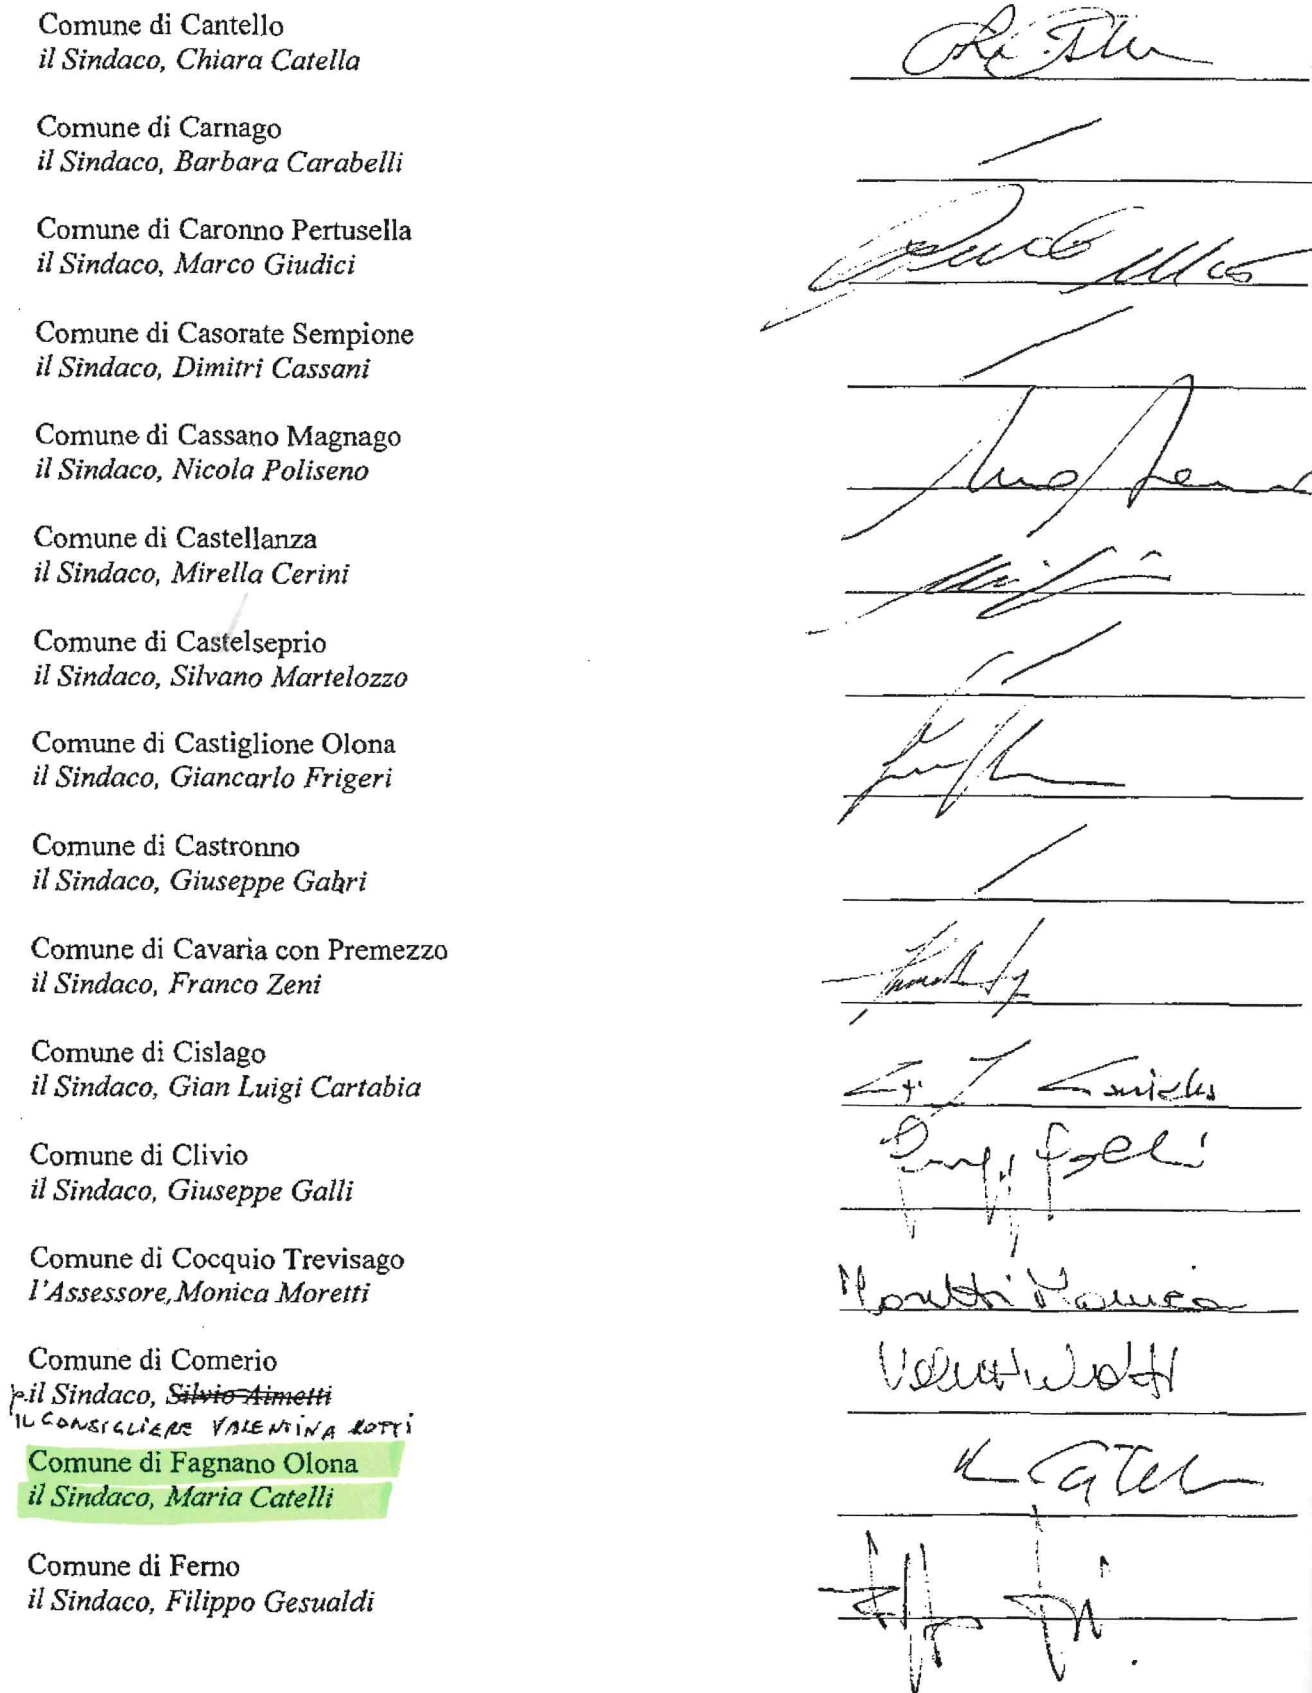 Comune di Cantello
il Sindaco, Chiara Catella
Comune di Carnago
il Sindaco, Barbara Carabelli
Comune di Caronno Pertusella
il Sindaco, Marco Giudici
Comune di Casorate Sempione
il Sindaco, Dimitri Cassani
Comune di Cassano Magnago
il Sindaco, Nicola Poliseno
Comune di Castellanza
il Sindaco, Mirella Cerini
Comune di Castelseprio
il Sindaco, Silvano Martelozzo
Comune di Castiglione Olona
il Sindaco, Giancarlo Frigeri
Comune di Castronno
il Sindaco, Giuseppe Gabri
Comune di Cavaria con Premezzo
il Sindaco, Franco Zeni
Comune di Cislago
il Sindaco, Gian Luigi Cartabia
Comune di Clivio
il Sindaco, Giuseppe Galli
Comune di Cocquio Trevisago
l'Assessore, Monica Moretti
Moretti Monica
Comune di Comerio
p. il Sindaco, Silvio Aimetti
IL CONSIGLIERE VALENTINA ROTTI
Comune di Fagnano Olona
il Sindaco, Maria Catelli
Comune di Ferno
il Sindaco, Filippo Gesualdi